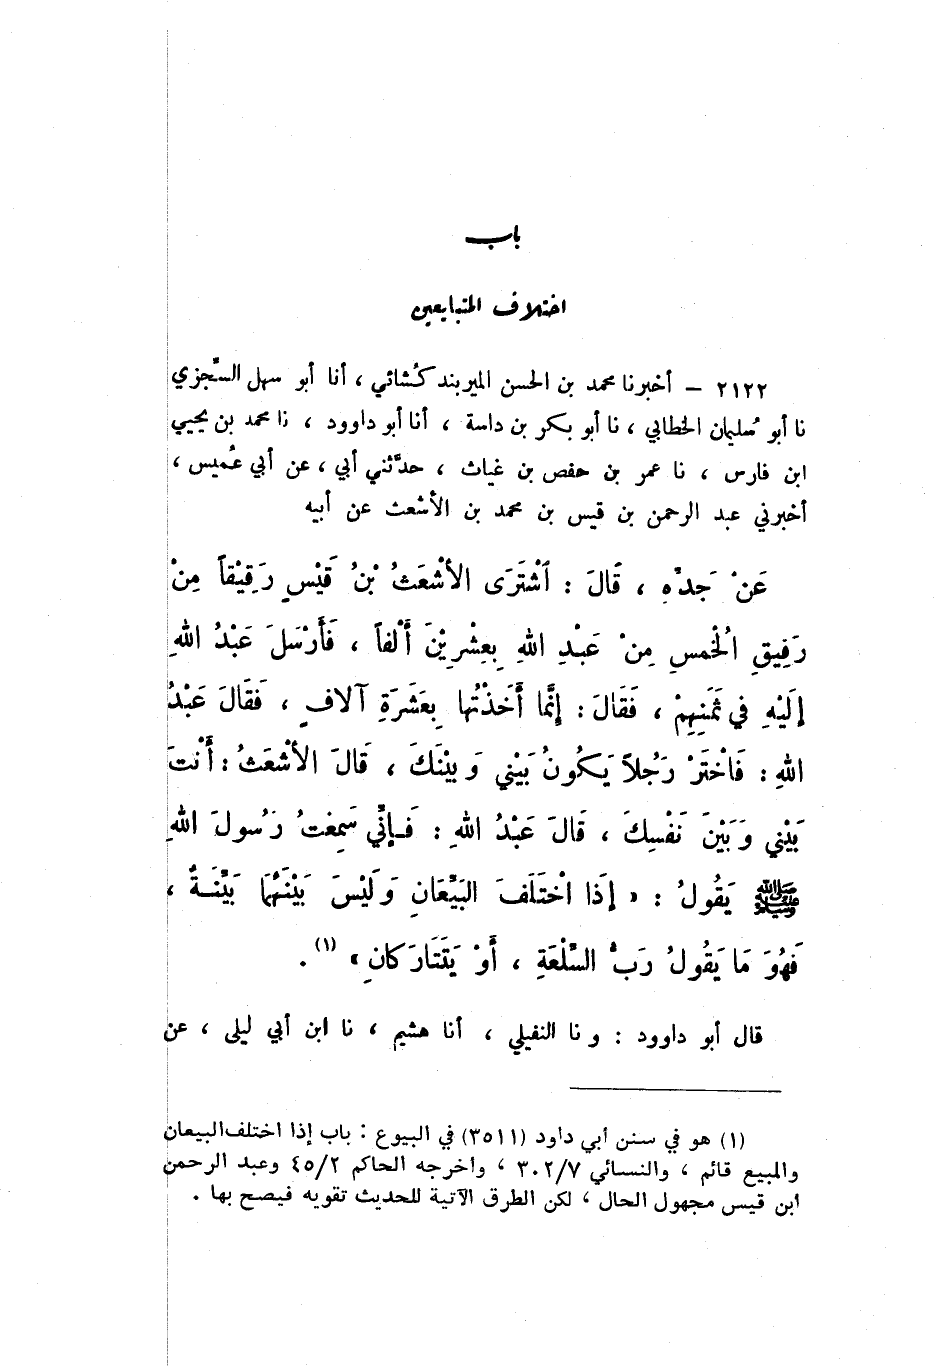 باب
اختلاف المتبايعين
٢١٢٢ – أخبرنا محمد بن الحسن الميربندكُشائي ، أنا أبو سهل السِّجزي
نا أبو سُليمان الخطابي ، نا أبو بكر بن داسة ، أنا أبو داوود ، نا محمد بن يحيى
ابن فارس ، نا عمر بن حفص بن غياث ، حدَّثني أبي ، عن أبي عُميس ،
أخبرني عبد الرحمن بن قيس بن محمد بن الأشعث عن أبيه
عَنْ جَدِّهِ ، قَالَ : اَشْتَرَى الأشْعَثُ بْنُ قَيْسٍ رَقِيْقاً مِنْ
رَقِيقِ الْخُمسِ مِنْ عَبْدِ اللهِ بِعِشْرِيْنَ أَلْفاً ، فَأَرْسَلَ عَبْدُ اللهِ
إلَيْهِ في ثَمَنِهِمْ ، فَقَالَ : إنَّما أَخَذْتُها بِعَشَرَةِ آلافٍ ، فَقَالَ عَبْدُ
اللهِ : فَاخْتَرْ رَجُلاً يَكُونُ بَيْني وَبيْنَكَ ، قَالَ الأشْعَثُ : أَنْتَ
بَيْني وَبَيْنَ نَفْسِكَ ، قَالَ عَبْدُ اللهِ : فَإنِّي سَمِعْتُ رَسُولَ اللهِ
ﷺ يَقُولُ : « إذَا اخْتَلَفَ البَيِّعَانِ وَلَيْسَ بَيْنَهُما بَيِّنَةٌ ،
فَهُوَ مَا يَقُولُ رَبُّ السِّلْعَةِ ، أَوْ يَتَتَارَكانِ » (١) .
قال أبو داوود : ونا النفيلي ، أنا هشيم ، نا ابن أبي ليلى ، عن
(١) هو في سنن أبي داود (٣٥١١) في البيوع : باب إذا اختلف البيعان
والمبيع قائم ، والنسائي ٣٠٢/٧ ، وأخرجه الحاكم ٤٥/٢ وعبد الرحمن
ابن قيس مجهول الحال ، لكن الطرق الآتية للحديث تقويه فيصح بها .